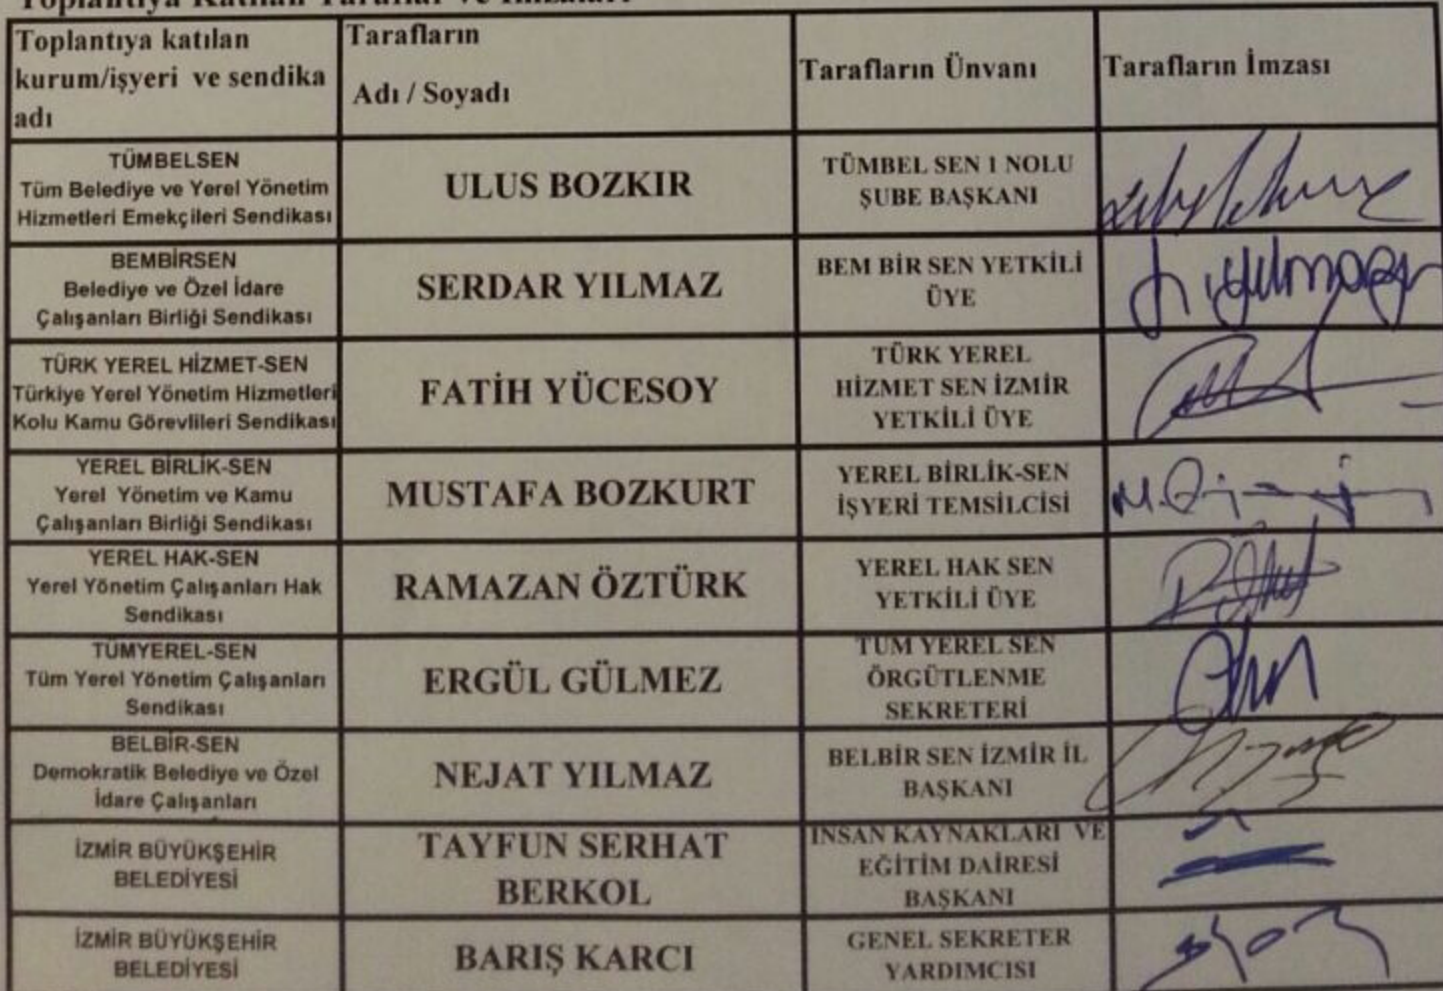 Toplantıya Katılan Taraflar ve İmzaları
Toplantıya katılan
kurum/işyeri ve sendika
adı
Tarafların
Adı / Soyadı
Tarafların Ünvanı
Tarafların İmzası
TÜMBELSEN
Tüm Belediye ve Yerel Yönetim
Hizmetleri Emekçileri Sendikası
ULUS BOZKIR
TÜMBEL SEN 1 NOLU
ŞUBE BAŞKANI
BEMBİRSEN
Belediye ve Özel İdare
Çalışanları Birliği Sendikası
SERDAR YILMAZ
BEM BİR SEN YETKİLİ
ÜYE
TÜRK YEREL HİZMET-SEN
Türkiye Yerel Yönetim Hizmetleri
Kolu Kamu Görevlileri Sendikası
FATİH YÜCESOY
TÜRK YEREL
HİZMET SEN İZMİR
YETKİLİ ÜYE
YEREL BİRLİK-SEN
Yerel Yönetim ve Kamu
Çalışanları Birliği Sendikası
MUSTAFA BOZKURT
YEREL BİRLİK-SEN
İŞYERİ TEMSİLCİSİ
YEREL HAK-SEN
Yerel Yönetim Çalışanları Hak
Sendikası
RAMAZAN ÖZTÜRK
YEREL HAK SEN
YETKİLİ ÜYE
TÜMYEREL-SEN
Tüm Yerel Yönetim Çalışanları
Sendikası
ERGÜL GÜLMEZ
TÜM YEREL SEN
ÖRGÜTLENME
SEKRETERİ
BELBİR-SEN
Demokratik Belediye ve Özel
İdare Çalışanları
NEJAT YILMAZ
BELBİR SEN İZMİR İL
BAŞKANI
İZMİR BÜYÜKŞEHİR
BELEDİYESİ
TAYFUN SERHAT
BERKOL
İNSAN KAYNAKLARI VE
EĞİTİM DAİRESİ
BAŞKANI
İZMİR BÜYÜKŞEHİR
BELEDİYESİ
BARIŞ KARCI
GENEL SEKRETER
YARDIMCISI